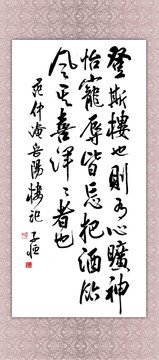 登斯樓也則有心曠神
怡寵辱皆忘把酒臨
風其喜洋洋者也
范仲淹岳陽樓記